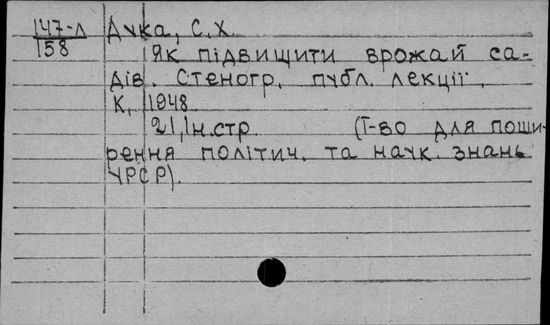 147-л
158
Дука, С.Х.
Як підвищити врожай са-
дів. Стеногр. публ. лекції.
К., 1948.
21,1н.стр. (Т-во для поши-
рення політич. та наук. знань
УРСР).